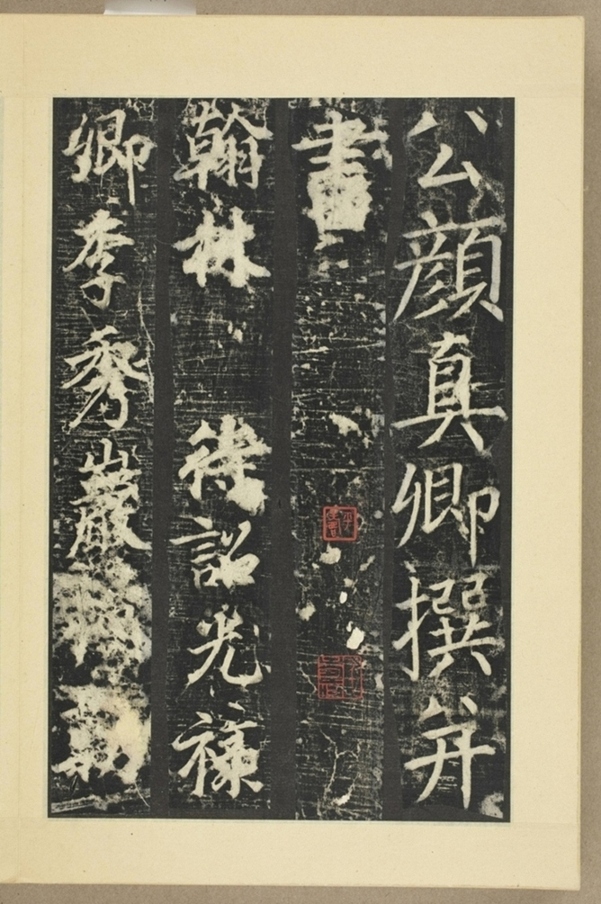 公顏真卿撰并
書
翰林待詔光祿
卿李秀巖勒